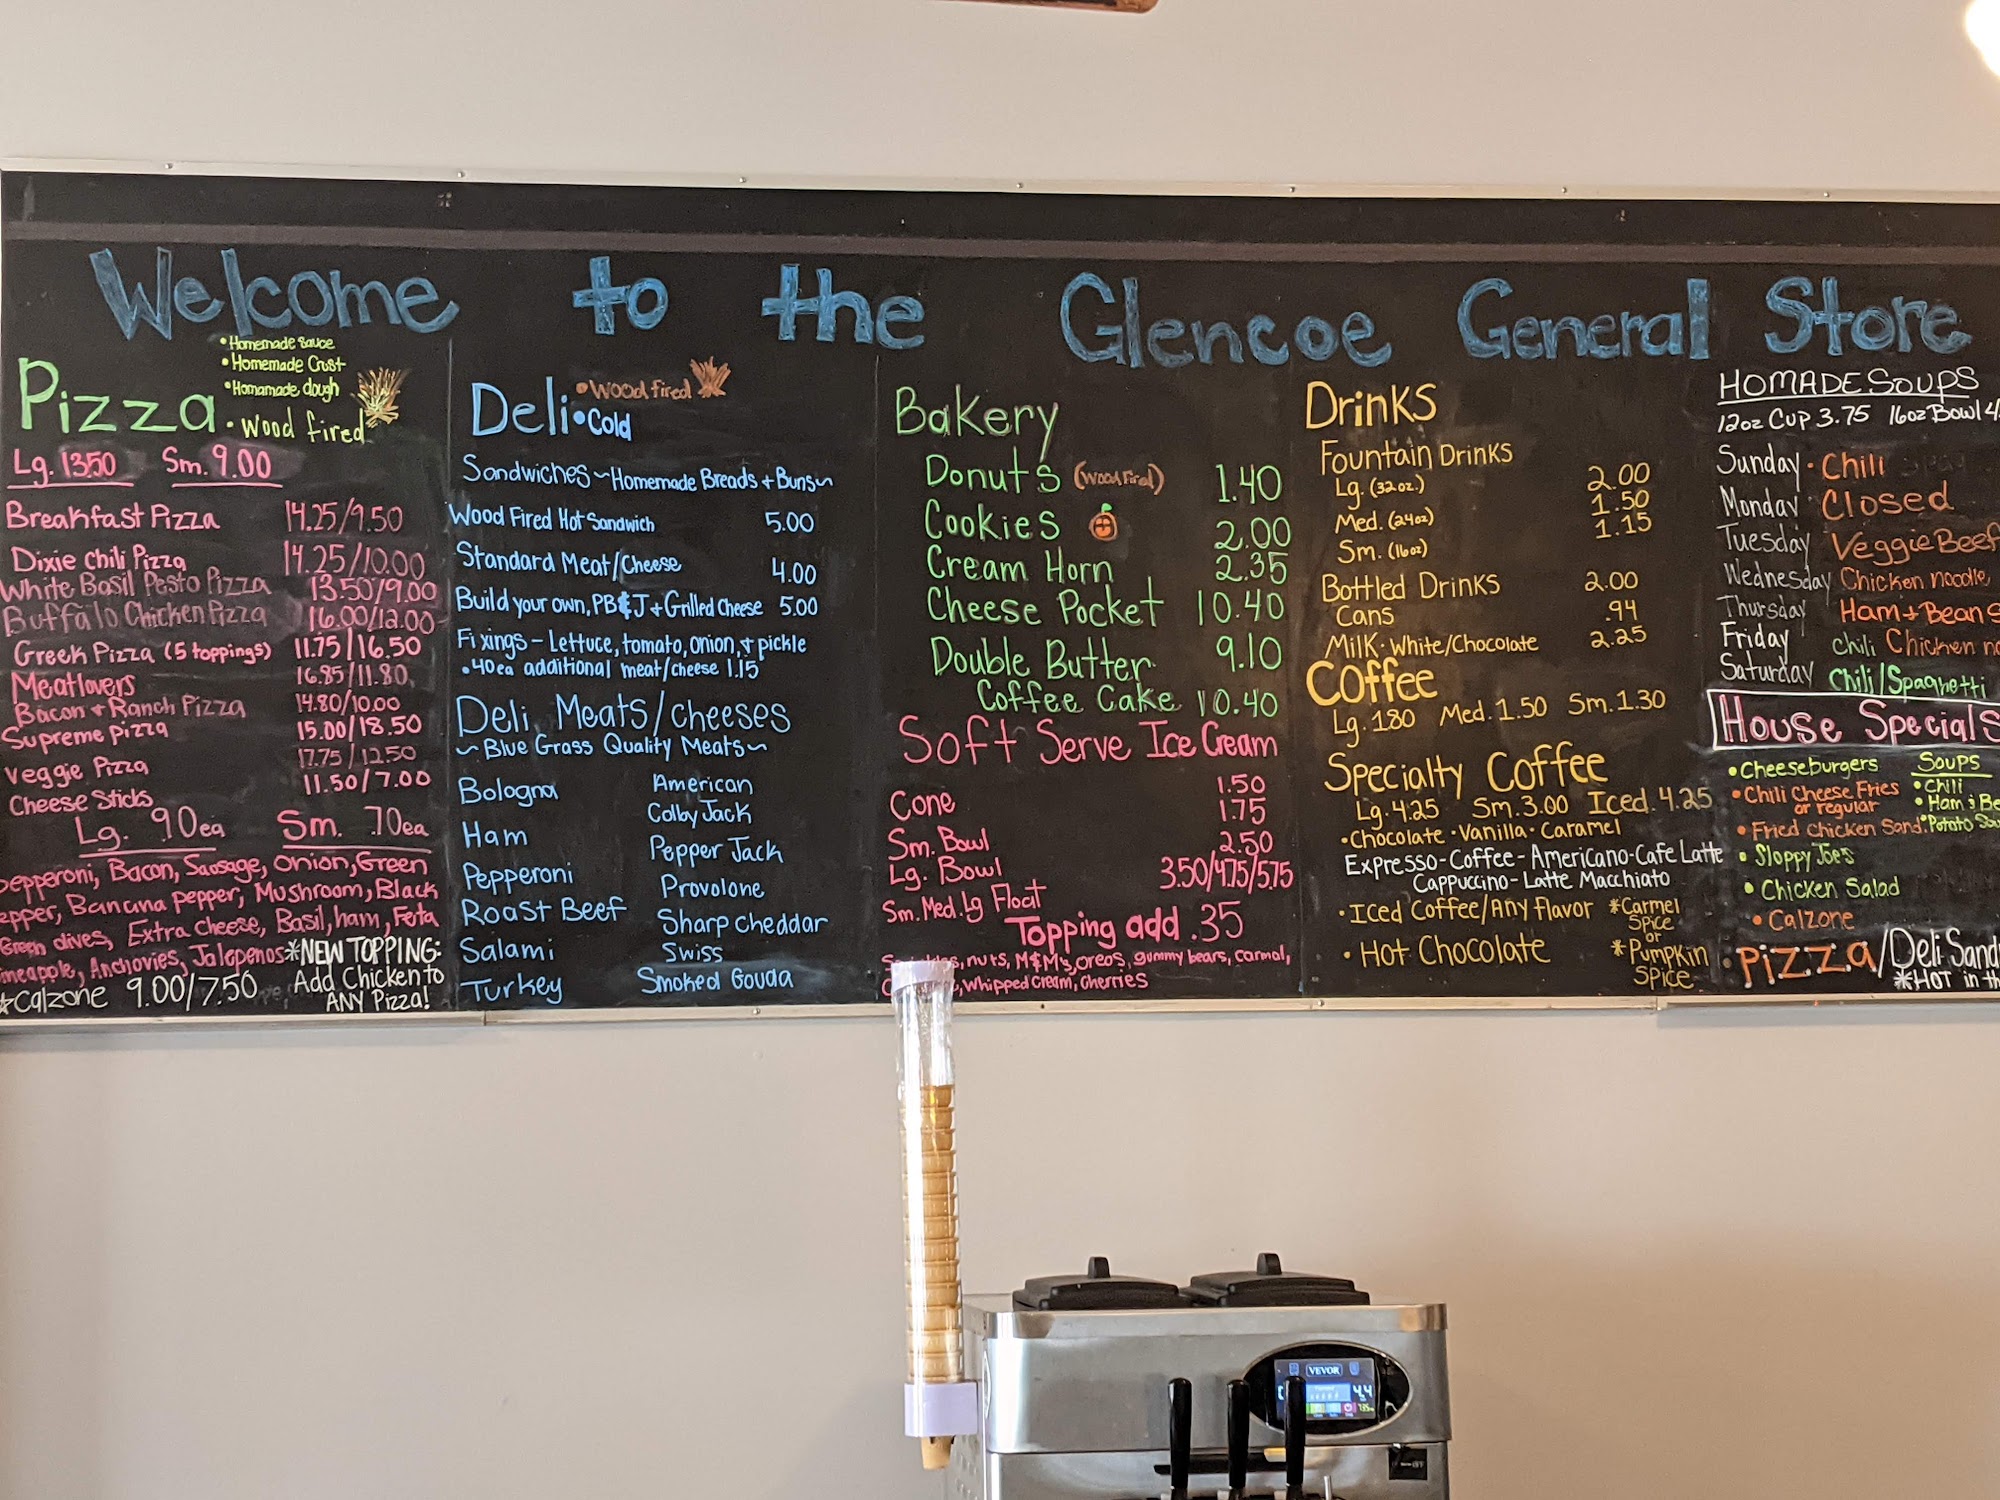 Welcome to the Glencoe General Store
• Homemade sauce
• Homemade Crust
• Homamade dough
Pizza • Wood fired
Lg. 1350 Sm. 9.00
Breakfast Pizza 14.25/9.50
Dixie Chili Pizza 14.25/10.00
White Basil Pesto Pizza 13.50/9.00
Buffalo Chicken Pizza 16.00/12.00
Greek Pizza (5 toppings) 11.75/16.50
Meatlovers 16.85/11.80
Bacon + Ranch Pizza 14.80/10.00
Supreme Pizza 15.00/18.50
Veggie Pizza 17.75/12.50
Cheese Sticks 11.50/7.00
Lg. .90ea Sm. .70ea
Pepperoni, Bacon, Sausage, Onion, Green
epper, Banana pepper, Mushroom, Black
Green olives, Extra cheese, Basil, ham, Feta
ineapple, Anchovies, Jalapenos *NEW TOPPING:
Add Chicken to
ANY Pizza!
*Calzone 9.00/7.50
Deli • Wood fired
• Cold
Sandwiches ~Homemade Breads + Buns~
Wood Fired Hot Sandwich 5.00
Standard Meat/Cheese 4.00
Build your own, PB&J + Grilled Cheese 5.00
Fixings - Lettuce, tomato, onion, + pickle
• .40ea additional meat/cheese 1.15
Deli Meats/Cheeses
~Blue Grass Quality Meats~
Bologna American
Colby Jack
Ham Pepper Jack
Pepperoni Provolone
Roast Beef Sharp Cheddar
Salami Swiss
Turkey Smoked Gouda
Bakery
Donuts (Wood Fired) 1.40
Cookies 2.00
Cream Horn 2.35
Cheese Pocket 10.40
Double Butter 9.10
Coffee Cake 10.40
Soft Serve Ice Cream
Cone 1.50
1.75
Sm. Bowl 2.50
Lg. Bowl 3.50/4.75/5.75
Sm. Med. Lg Float
Topping add .35
nuts, M&Ms, oreos, gummy bears, carmal,
whipped cream, cherries
Drinks
Fountain Drinks
Lg. (32oz.) 2.00
Med. (24oz) 1.50
Sm. (16oz) 1.15
Bottled Drinks 2.00
Cans .94
Milk • White/Chocolate 2.25
Coffee
Lg. 1.80 Med. 1.50 Sm. 1.30
Specialty Coffee
Lg. 4.25 Sm. 3.00 Iced. 4.25
• Chocolate • Vanilla • Caramel
Expresso - Coffee - Americano - Cafe Latte
Cappuccino - Latte Macchiato
• Iced Coffee/Any flavor *Carmel
Spice
or
• Hot Chocolate *Pumpkin
Spice
HOMADE SOUPS
12oz Cup 3.75 16oz Bowl
Sunday • Chili
Monday Closed
Tuesday Veggie Beef
Wednesday Chicken noodle
Thursday Ham + Beans
Friday Chili Chicken
Saturday Chili/Spaghetti
House Specials
• Cheeseburgers Soups
• Chili Cheese Fries • Chili
or regular • Ham & Be
• Fried Chicken Sand. • Potato Sou
• Sloppy Joe's
• Chicken Salad
• Calzone
Pizza/Deli Sand
*HOT in th
VEVOR